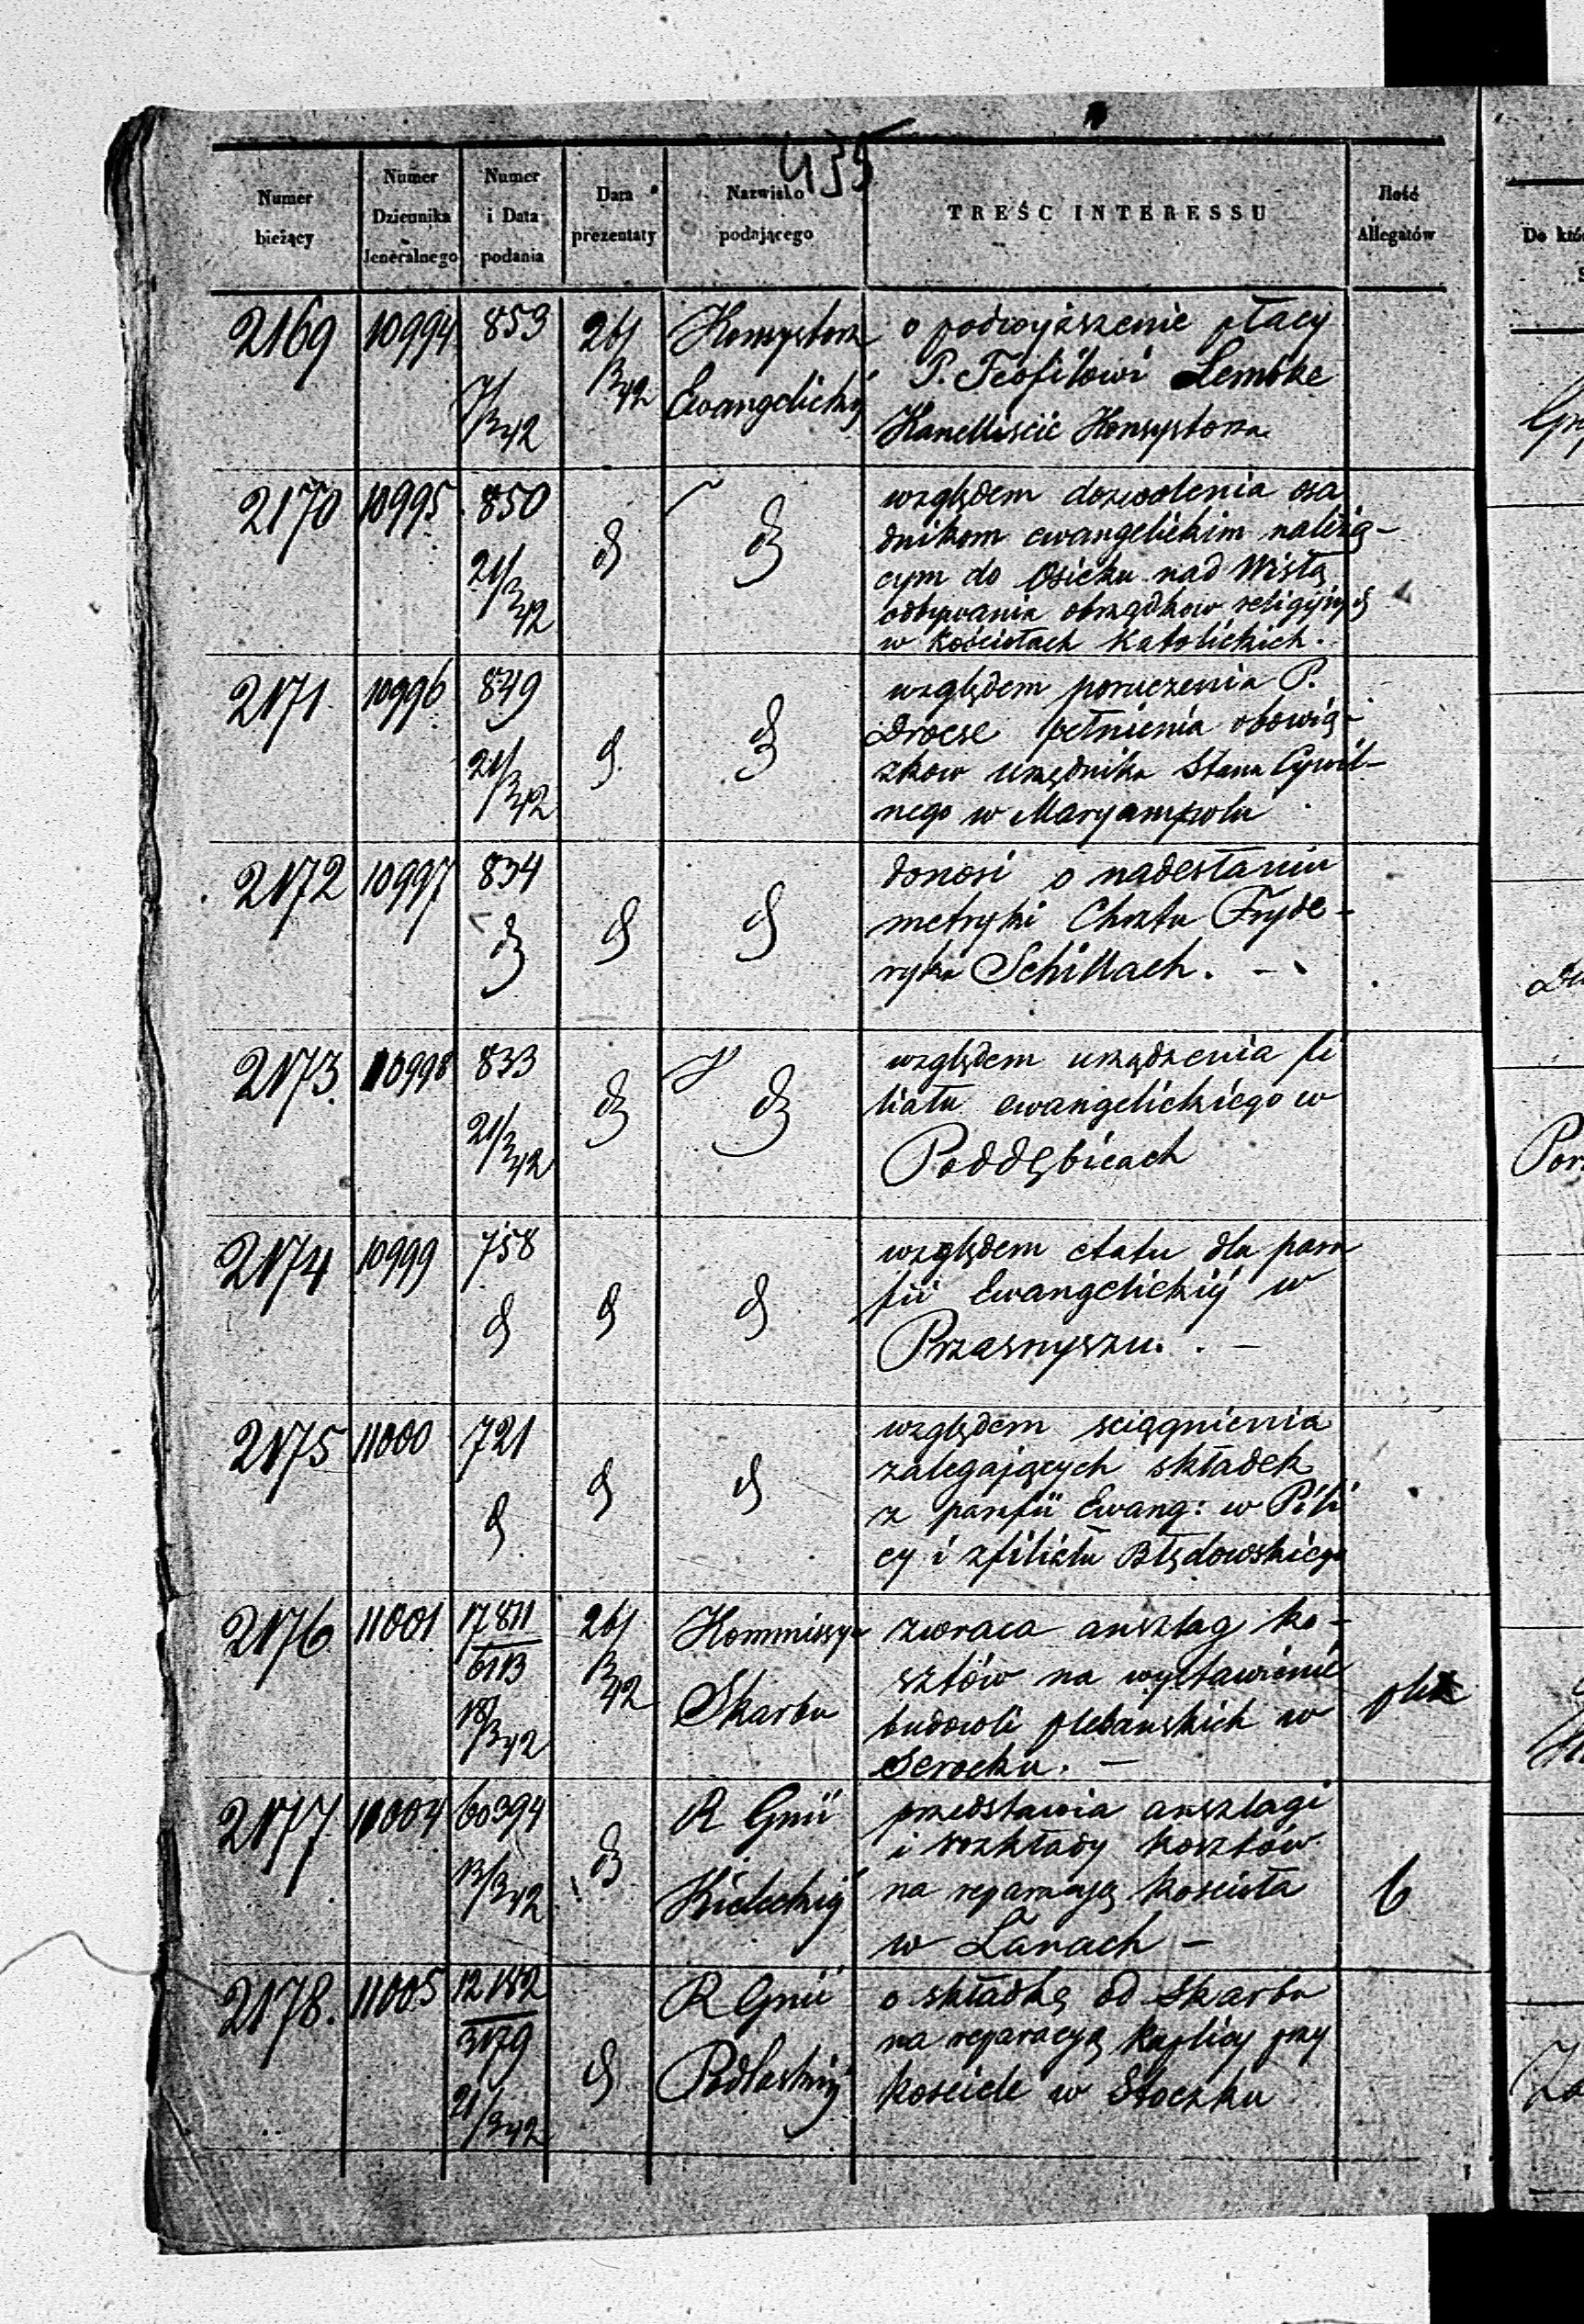 435
Numer bieżący
Numer Dziennika Jeneralnego
Numer i Data podania
Data prezentaty
Nazwisko podającego
TREŚĆ INTERESSU
Ilość Allegatów
2169 10994 853 7/3 42 26/3 42 Konsystorz Ewangelicki
o podwyższenie płacy
P. Teofilowi Lembke
Kancelliscie Konsystorza
2170 10995 850 21/3 42 d d
względem dozwolenia osa
dnikom ewangelickim należą-
cym do Osieku nad Wisłą
odbywania obrządków religijnych
w kościołach katolickich.
2171 10996 849 21/3 42 d d
względem poruczenia P.
Droese pełnienia obowią-
zkow urzędnika Stanu Cywil-
nego w Maryampolu
2172 10997 834 d d d
donosi o nadesłaniu
metryki Chrztu Fryde-
ryka Schillach. -
2173. 10998 833 21/3 42 d d
względem urządzenia fi
liału ewangelickiego w
Poddębicach
2174 10999 758 d d d
względem etatu dla para
fii Ewangelickiý w
Przasnyszu. . -
2175 11000 721 d d d
względem sciągnienia
zalegających składek
z parafii Ewang: w Pili
cy i z filiału Błędowskiego
2176 11001 17811/6113 18/3 42 26/3 42 Kommissya Skarbu
zwraca anszlag ko-
sztów na wystawienie
budowli plebańskich w
Serocku. - plik
2177 11004 60394 13/3 42 d R Gnii Kieleckiý
przedstawia anszlagi
i rozkłady kosztów
na reparacyę kościoła
w Łanach - 6
2178. 11005 12182/3179 21/3 42 d R Gnii Podlaskiý
o składkę od Skarbu
na reparacyą kaplicy przy
kościele w Stoczku
Do któ